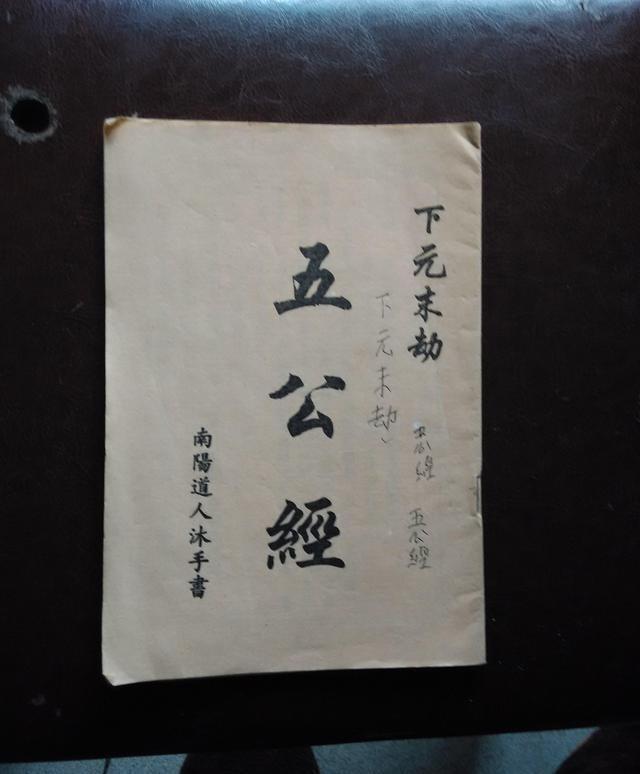 下元末劫
五公經
五公經
下元末劫
五公經
南陽道人沐手書